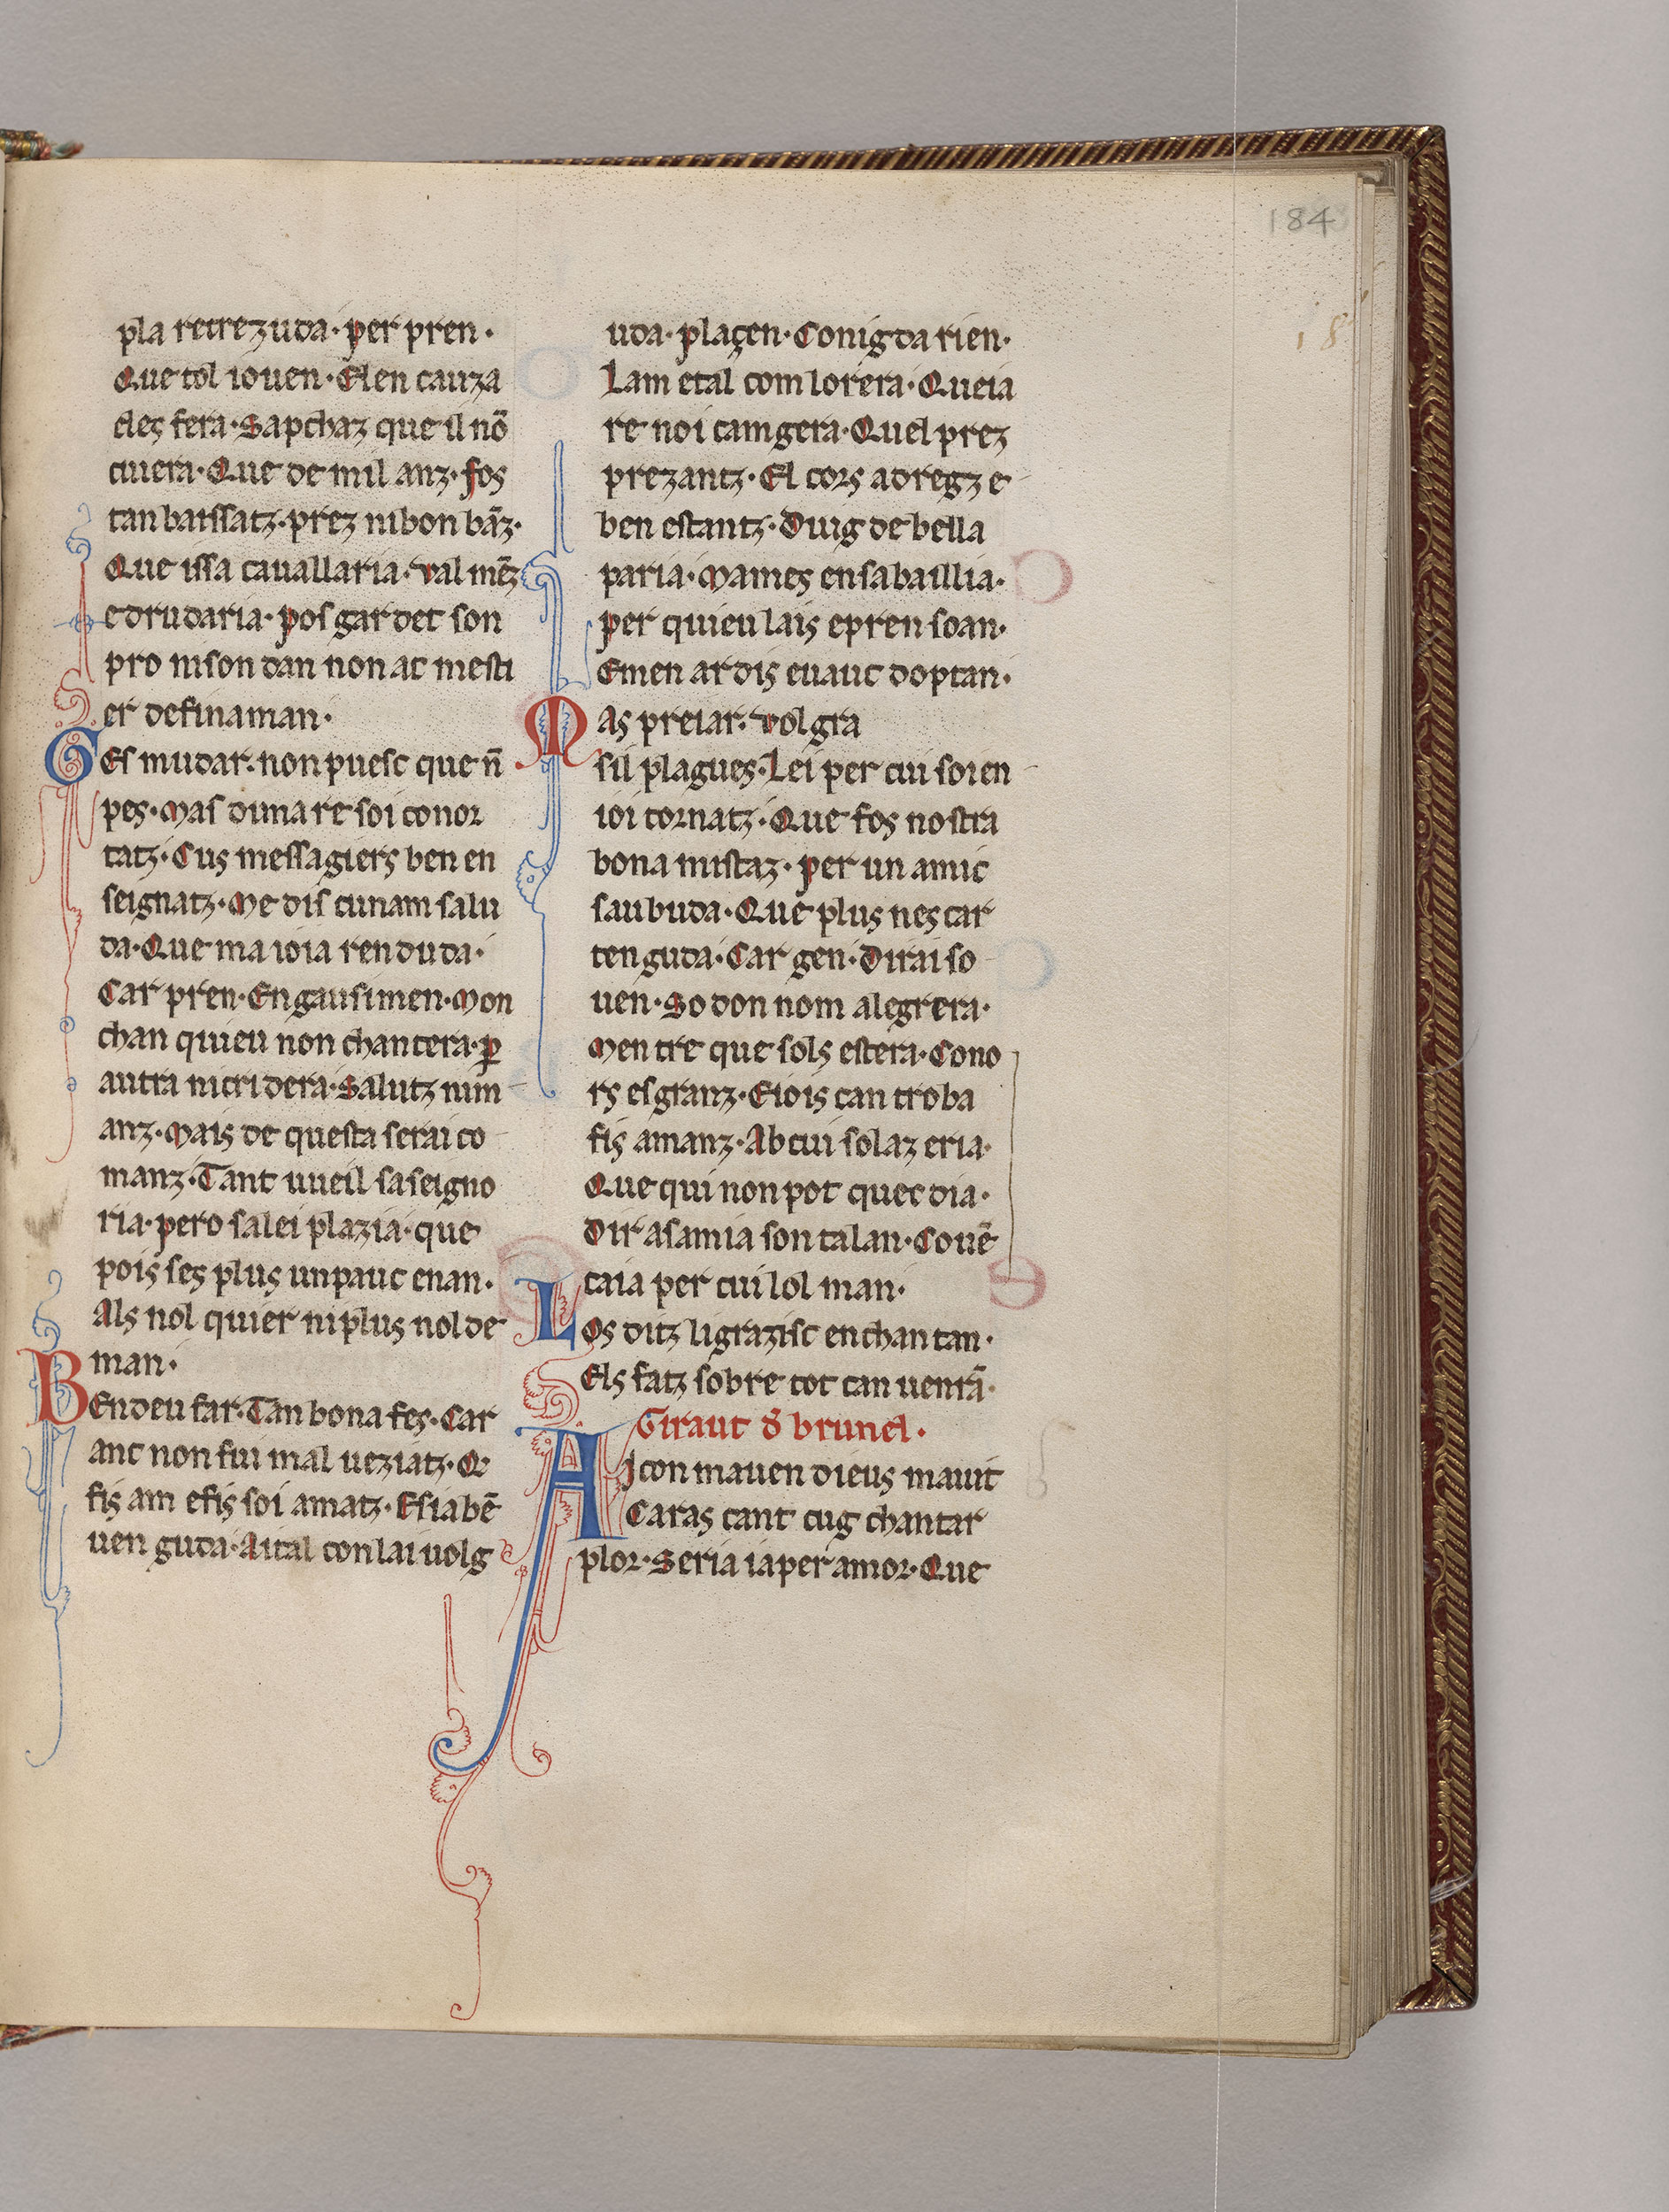 184
18
pla retrezuda· per pren·
Que tol iouen· El en cauza
cles fera· Sapchaz que il nō
cuuera· Que de mil anz· fos
tan baissatz· prez ni bon bāz·
Que issa cauallaria· Val mēz
e drudaria· pos gardet son
pro ni son dan non ac mesti
er defin aman·
GEs mudar· non puesc que n̄
pes· Mas duna re soi conor
tatz· Cus messagiers ben en
seignatz· Me dis cunam salu
da· Que ma ioia renduda·
Car pren· En gausimen· Mon
chan quieu non chantera· ꝑ
autra ni cridera· Salutz nim
anz· Mais de questa serai co
manz· Tant uueil sa seigno
ria· pero sa lei plazia· que
pois ses plus un pauc enan·
Als nol quier ni plus nol de
man·
BEn deu far· Tan bona fes· Car
anc non fui mal ueziatz· Q
fis am e fis soi amatz· E sia bē
uenguda· Aital con lai uolg
uda· plaçen· Conigda rien·
Lam etal com lorera· Que ia
re noi camgera· Quel prez
prezantz· El cors adregz e
ben estantz· Duig de bella
paria· Mames en sa baillia·
per quieu lais e pren soan·
E men ardis e uauc doptan·
MAs preiar· Volgra
sil plagues· Lei per cui soi en
ioi tornatz· Que fos nostra
bona mistaz· per un amic
saubuda· Que plus nes car
tenguda· Car gen· Dirai so
uen· So don nom alegrera·
Mentre que sols estera· Cono
rs es granz· E iois can troba
fis amanz· Ab cui solaz e ria·
Que qui non pot quec dia·
Dir a samia son talan· Couē
caia per cui lol man·
LOs ditz li grazisc en chantan·
Els fatz sobre tot can uenrā·
Giraut δ brunel·
AJcon mauen dieus mauit
Caras cant cug chantar
plor· Seria ia per amor· Que